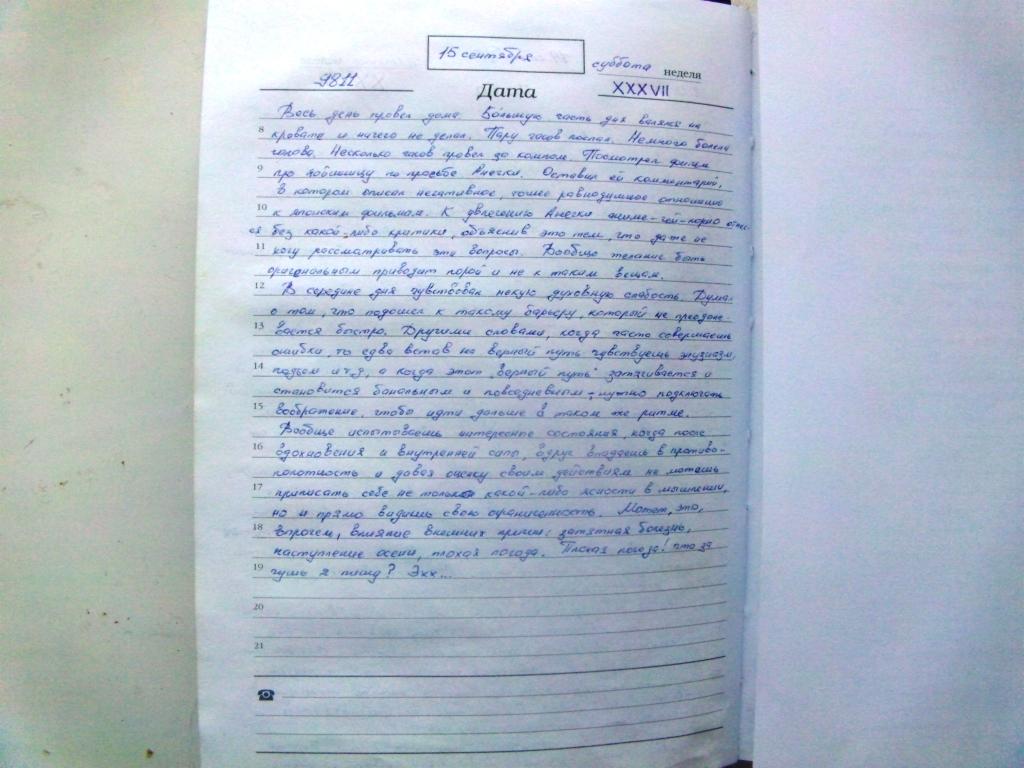 15 сентября
суббота неделя
9811 Дата XXXVII
Весь день провел дома. Большую часть дня валялся на
8 кровате и ничего не делал. Пару часов поспал. Немного болела
голова. Несколько часов провел за компом. Посмотрел фильм
9 про по просьбе Анески. Оставил ей комментарий,
в котором описал негативное, точнее равнодушное отношение
10 к японским фильмам. К увлечению Анески аниме-гей-порно отнес-
ся без какой-либо критики, объяснив это тем, что даже не
11 хочу рассматривать эти вопросы. Вообще желание быть
оригинальным приводит порой и не к таким вещам.
12 В середине дня чувствовал некую духовную слабость. Думал
о том, что подошел к такому барьеру, который не преодоле-
13 вается быстро. Другими словами, когда часто совершаешь
ошибки, то едва встав на верный путь чувствуешь энузиазм,
14 подъем и т.д, а когда этот "верный путь" затягивается и
становится банальным и повседневным - нужно подключать
15 вообращение, чтобы идти дальше в таком же ритме.
Вообще испытываешь интересные состояния, когда после
16 вдохновения и внутренней силы, вдруг впадаешь в противо-
положность и давая оценку своим действиям не можешь
17 приписать себе не только какой-либо ясности в мышлении,
но и прямо видишь свою ограниченность. Может, это,
18 впрочем, влияние внешних причин: затятная болезнь,
наступление осени, плохая погода. Плохая погода! что за
19 чушь я ? Эхх...
20
21